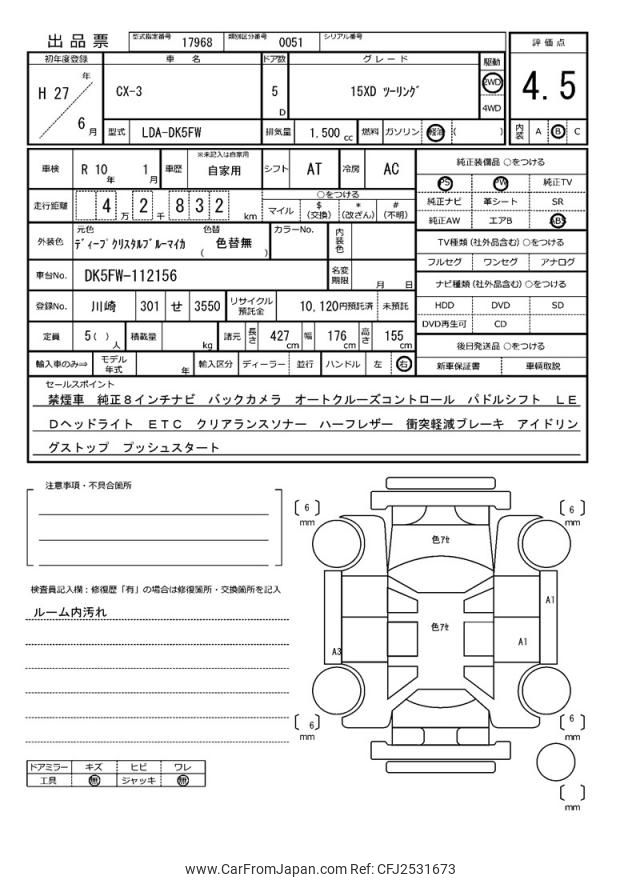 出品票 型式指定番号 17968 類別区分番号 0051 シリアル番号
初年度登録 車名 ドア数 グレード 駆動 評価点
H 27年 6月 CX-3 5D 15XD ツーリング 2WD 4WD 4.5
型式 LDA-DK5FW 排気量 1,500cc 燃料 ガソリン 軽油 ( ) 内装 A B C
車検 R 10年 1月 車歴 ※未記入は自家用 自家用 シフト AT 冷房 AC 純正装備品 ○をつける
PS PW 純正TV
走行距離 4万2千832km ○をつける
マイル $(交換) *(改ざん) #(不明)
純正ナビ 革シート SR
純正AW エアB ABS
外装色 元色 ディープクリスタルブルーマイカ 色替 ( 色替無 ) カラーNo. 内装色
TV種類 (社外品含む) ○をつける
フルセグ ワンセグ アナログ
車台No. DK5FW-112156 名変期限 月 日
ナビ種類 (社外品含む) ○をつける
登録No. 川崎 301 せ 3550 リサイクル預託金 10,120円預託済 未預託
HDD DVD SD
DVD再生可 CD
定員 5( )人 積載量 kg 諸元 長さ 427cm 幅 176cm 高さ 155cm
後日発送品 ○をつける
輸入車のみ⇒ モデル年式 年 輸入区分 ディーラー 並行 ハンドル 左 右 新車保証書 車輌取説
セールスポイント
禁煙車 純正8インチナビ バックカメラ オートクルーズコントロール パドルシフト LE
Dヘッドライト ETC クリアランスソナー ハーフレザー 衝突軽減ブレーキ アイドリン
グストップ プッシュスタート
注意事項・不具合箇所
検査員記入欄:修復歴「有」の場合は修復箇所・交換箇所を記入
ルーム内汚れ
6 mm
6 mm
色アセ
A1
色アセ
A3
A1
6 mm
6 mm
mm
ドアミラー キズ ヒビ ワレ
工具 無 ジャッキ 無
www.CarFromJapan.com Ref: CFJ2531673